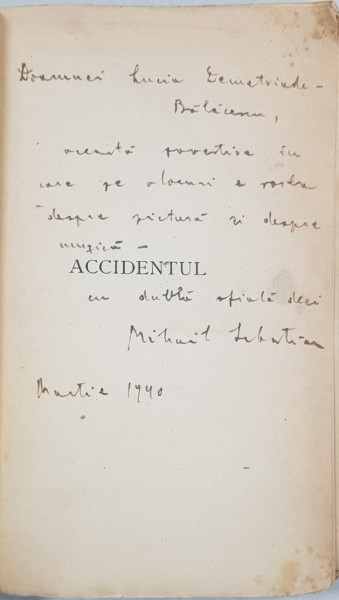 Doamnei Lucia Demetriade-
Bălăcescu,
această povestire în
care pe alocuri e vorba
despre pictură și despre
muzică –
ACCIDENTUL
cu dublă sfială deci
Mihail Sebastian
Martie 1940